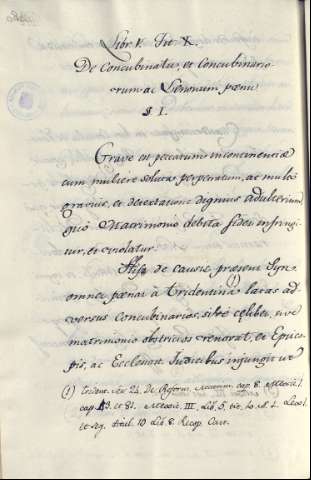 Libr. V. Tit. X.
De Concubinatu, et Concubinario-
rum ac Lenonum poena
§ I.
Grave est peccatum incontinentiæ
cum muliere soluta perpetratum, ac multo
gravius, et detestatione dignius adulterium
quo Matrimonio debita fides infringi-
tur, et violatur.
His de causis præsens Syn.
omnes poenas à Tridentina (1) latas ad-
versus Concubinarios, sive cælibes, sive
matrimonio obstrictos renovat, et Episco-
pis, ac Ecclesiast. Judicibus injungit ut
(1) Trident. Ses. 24. De Reform. Matrim. cap. 8. Mexic. I.
cap. 3. et 81. Mexic. III. Lib. 5. tit. 10. § 1. Leg. 1.
et seq. titul. 19 Lib. 8. Recop. Cast.